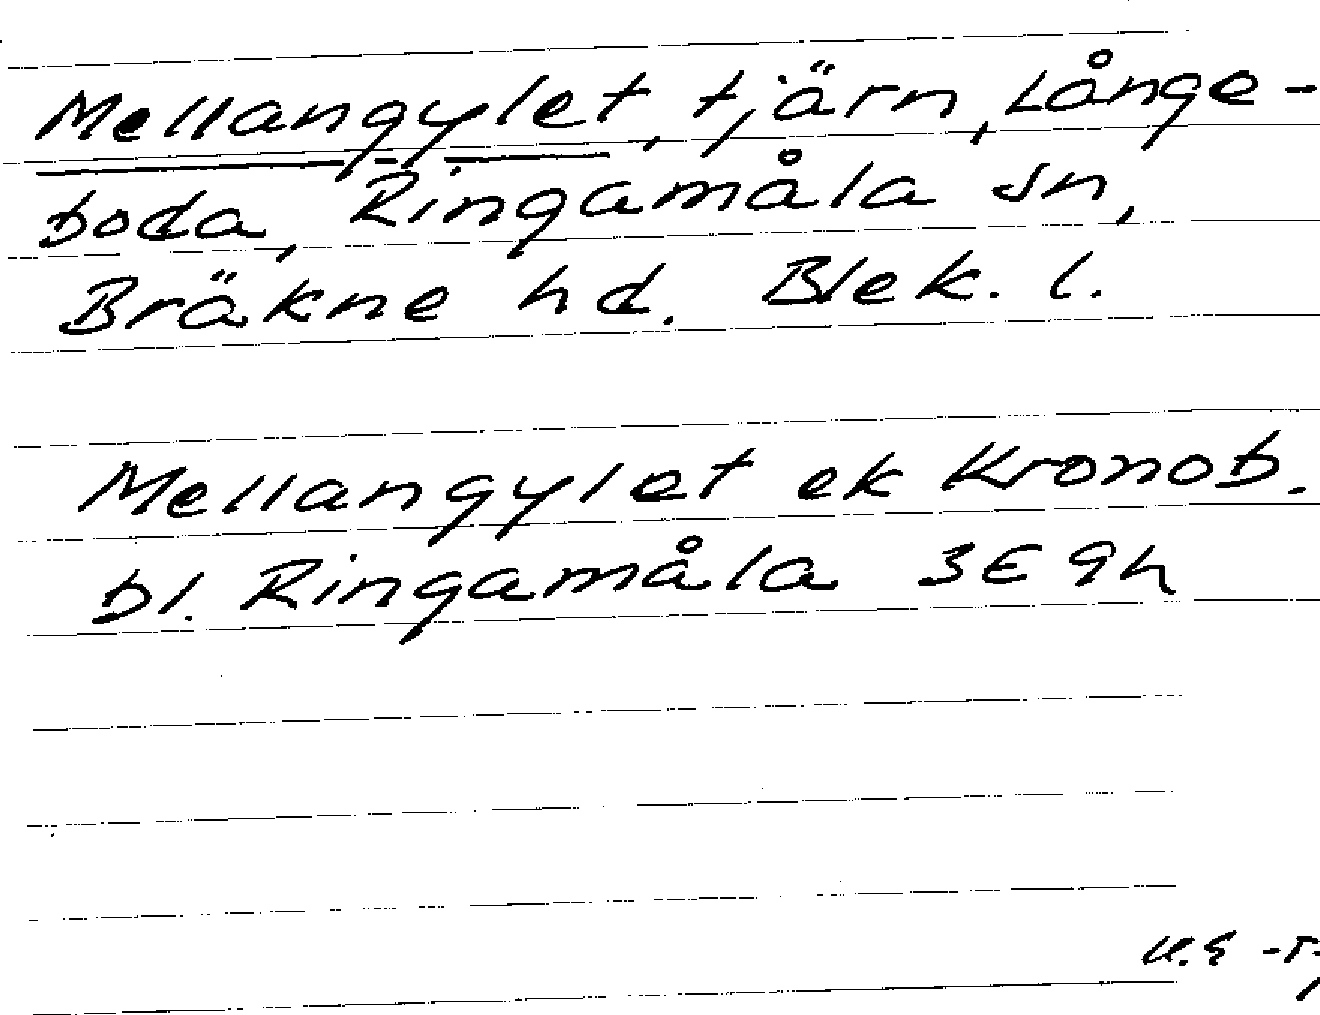 Mellangylet, tjärn, Långe-
boda, Ringamåla sn,
Bräkne hd. Blek. l.
Mellangylet ek Kronob.
bl. Ringamåla 3E 9h